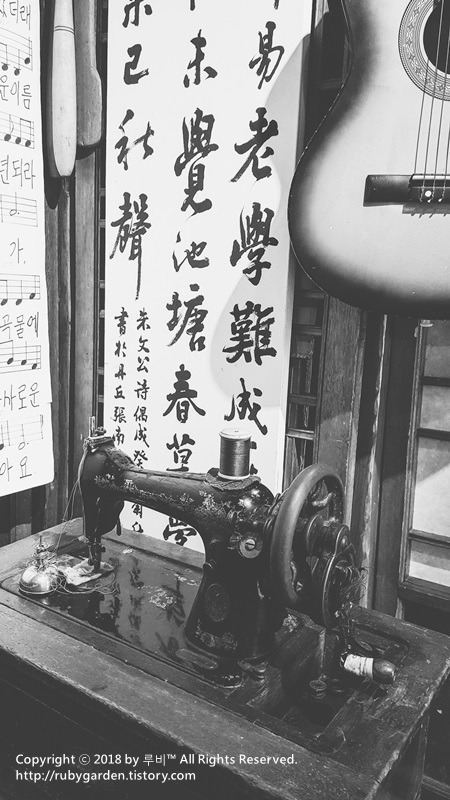 易老學難成
未覺池塘春草夢
已秋聲
朱文公詩偶成癸
書於丹丘張南
운이름
년되라
가.
곡물에
사로운
아요
Copyright ⓒ 2018 by 루비™ All Rights Reserved.
http://rubygarden.tistory.com